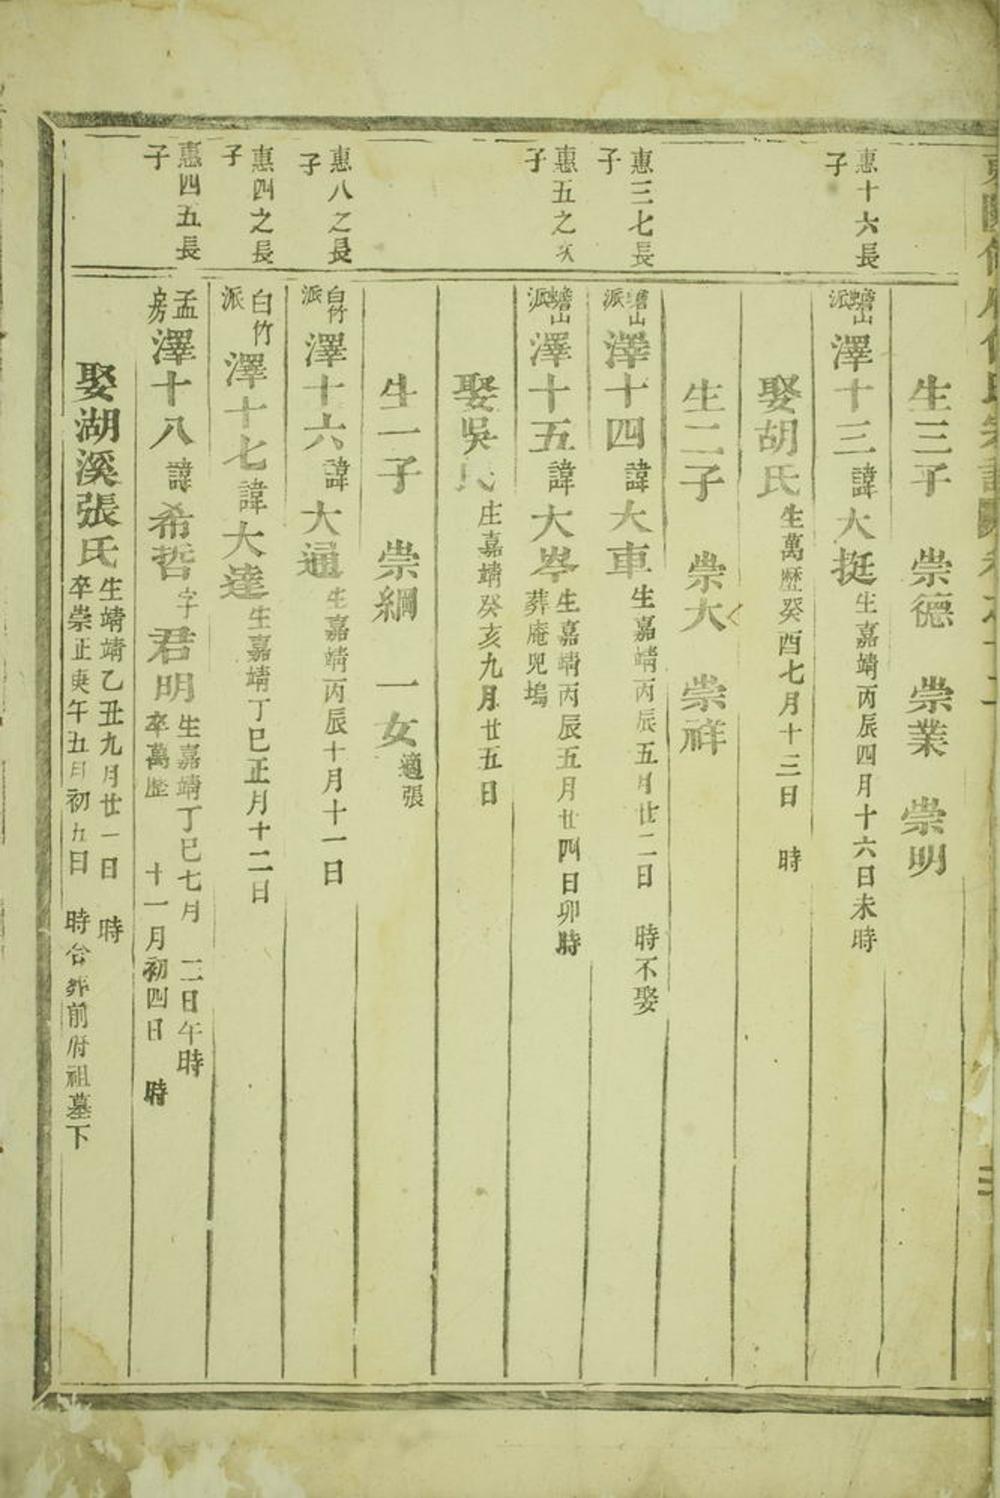 生三子　崇德　崇業　崇明
惠十六長子
蟾山派澤十三諱大挺生嘉靖丙辰四月十六日未時
娶胡氏生萬歷癸酉七月十三日　時
生二子　崇大　崇祥
惠三七長子
蟾山派澤十四諱大車生嘉靖丙辰五月廿二日　時不娶
惠五之次子
蟾山派澤十五諱大岑生嘉靖丙辰五月廿四日卯時葬庵兕塢
娶吳氏庄嘉靖癸亥九月廿五日
生一子　崇綱　一女適張
惠八之長子
白竹派澤十六諱大通生嘉靖丙辰十月十一日
惠四之長子
白竹派澤十七諱大達生嘉靖丁巳正月十二日
惠四五長子
孟房澤十八諱希哲字君明生嘉靖丁巳七月　二日午時卒萬歷　十一月初四日　時
娶湖溪張氏生靖靖乙丑九月廿一日　時卒崇正庚午五月初九日　時合葬前府祖墓下